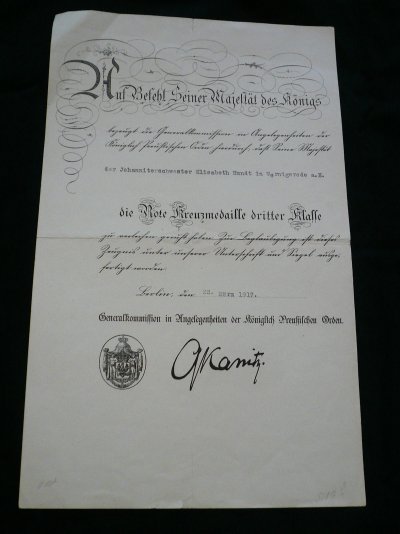 Auf Befehl Seiner Majestät des Königs
bezeugt die Generalkommission in Angelegenheiten der
Königlich Preußischen Orden hierdurch, daß Seine Majestät
der Johanniterschwester Elisabeth Hundt in Wernigerode a.H.
die Rote Kreuzmedaille dritter Klasse
zu verleihen geruht haben. Zur Beglaubigung ist dieses
Zeugnis unter unserer Unterschrift und Siegel ausge-
fertigt worden.
Berlin, den 22. März 1917.
Generalkommission in Angelegenheiten der Königlich Preußischen Orden.
Kanitz.